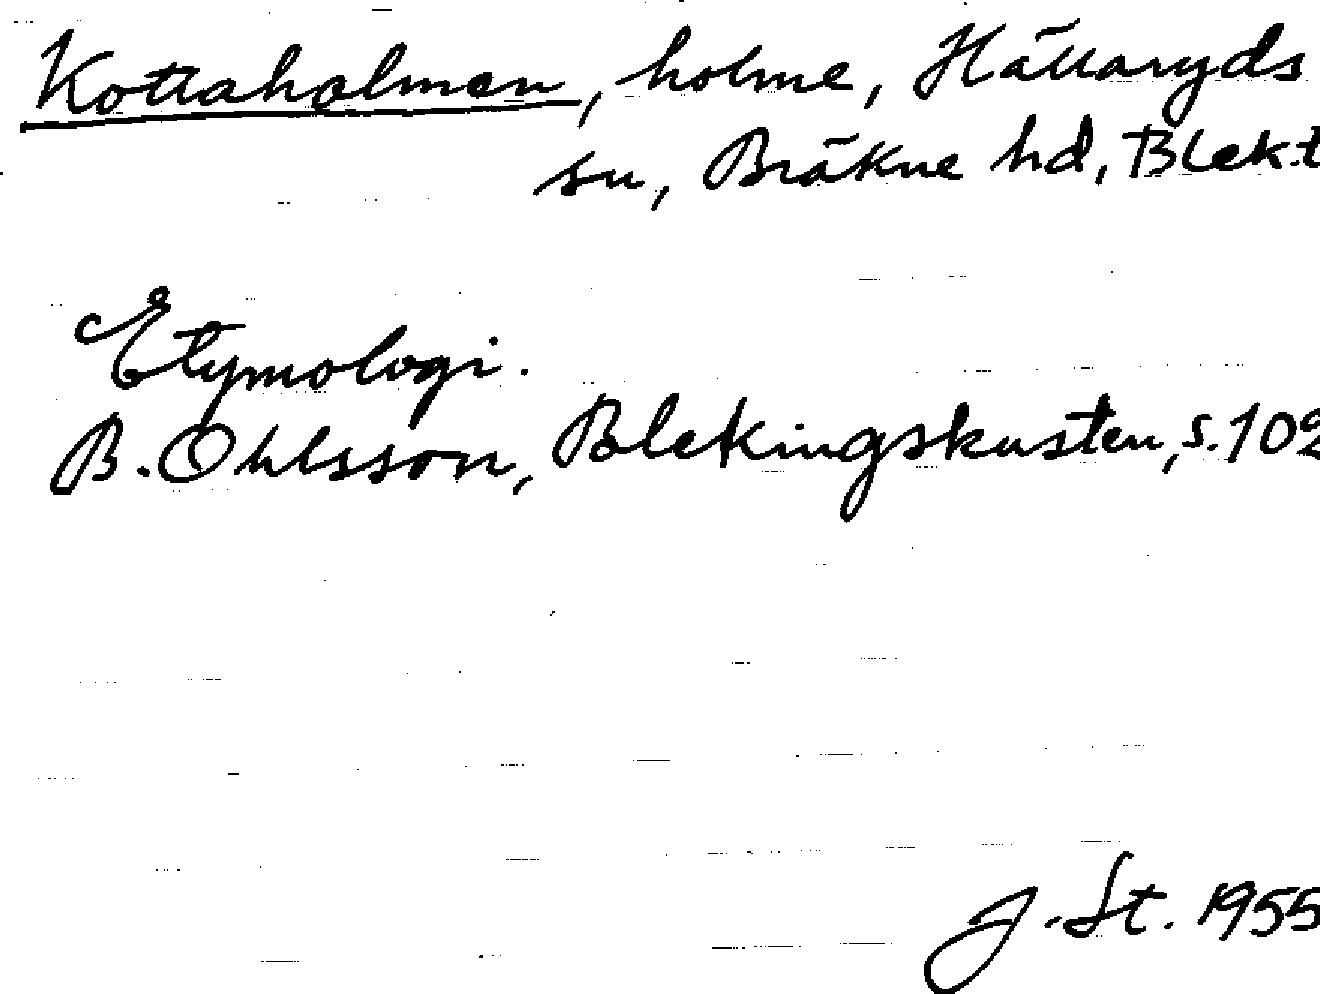 Kottaholmen, holme, Hällaryds
sn, Bräkne hd, Blek.
Etymologi.
B. Ohlsson, Blekingskusten, s. 102
J. St. 1955